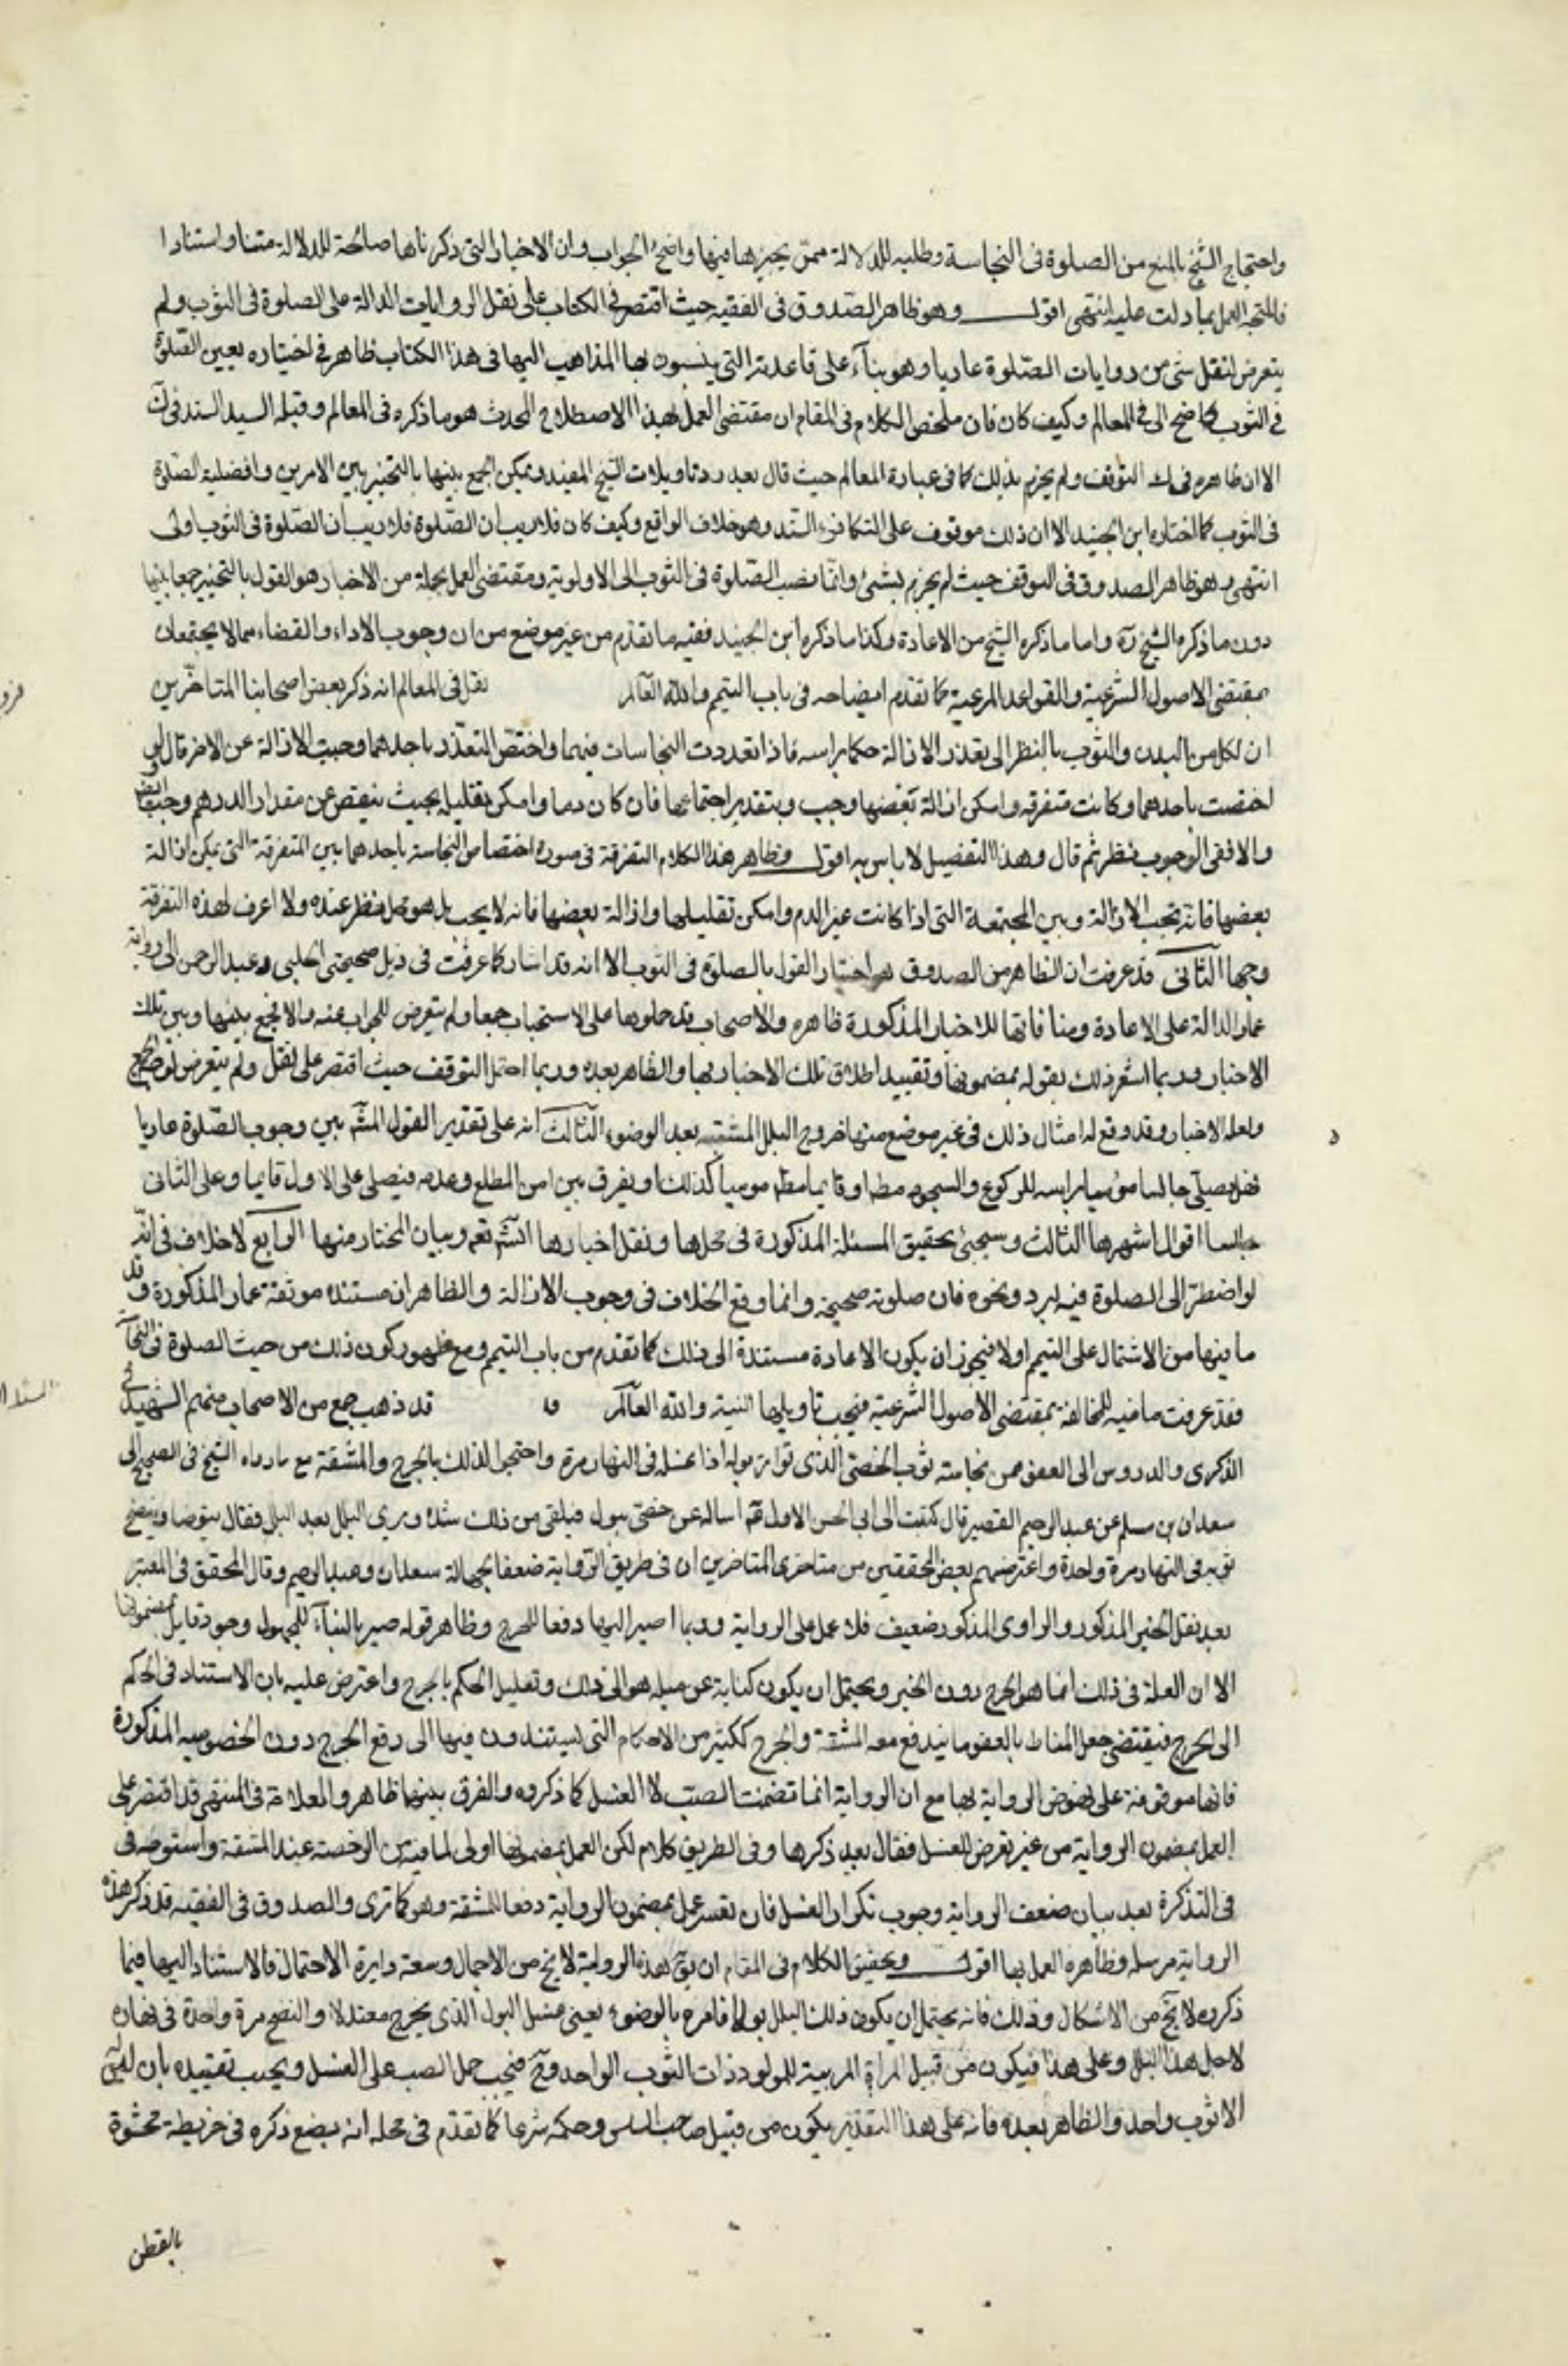 واحتجاج الشيخ بالمنع من الصلوة فى النجاسة وطلبه للدلالة ممن يجيزها فيها واضح الجواب وان الاخبار التى ذكرناها صالحة للدلالة متنا واستنادا
فالمتجه العمل بما دلت عليه انتهى اقول وهو ظاهر الصدوق فى الفقيه حيث اقتصر فى الكتاب على نقل الروايات الدالة على الصلوة فى الثوب ولم
يتعرض لنقل شئ من روايات الصلوة عاريا وهو بناء على قاعدته التى ينسبون بها المذاهب اليها فى هذا الكتاب ظاهر فى اختياره تعين الصلوة
فى الثوب كما ضح الى فى المعالم وكيف كان فان ملخص الكلام فى المقام ان مقتضى العمل بهذا الاصطلاح المحدث هو ما ذكره فى المعالم وقبله السيد السند فى ك
الا ان ظاهره فى ك التوقف ولم يجزم بذلك كما فى عبارة المعالم حيث قال بعد رد تاويلات الشيخ المفيد ويمكن الجمع بينها بالتخيير بين الامرين وافضلية الصلوة
فى الثوب كما اختاره ابن الجنيد الا ان ذلك موقوف على التكافؤ السند وهو خلاف الواقع وكيف كان فلا ريب ان الصلوة فلا ريب ان الصلوة فى الثوب اولى
انتهى وهو ظاهر الصدوق فى التوقف حيث لم يجزم بشئ وانما نصب الصلوة فى الثوب الى الاولوية ومقتضى العمل بجملة من الاخبار هو القول بالتخيير جمعا بينها
دون ما ذكره الشيخ ره واما ما ذكره الشيخ من الاعادة وكذا ما ذكره ابن الجنيد ففيه ما تقدم من غير موضع من ان وجوب الاداء والقضاء مما لا يجتمعان
بمقتضى الاصول الشرعية والقواعد المرعية كما تقدم ايضاحه فى باب التيمم والله العالم نقل فى المعالم انه ذكر بعض اصحابنا المتاخرين
ان لكل من البدن والثوب بالنظر الى تعذر الازالة حكما براسه فاذا تعددت النجاسات فيهما واختص التعذر باحدهما وجبت الازالة عن الاخر قال
اختصت باحدهما وكانت متفرقة وامكن ازالة بعضها وجب وبتقدير اجتماعها فان كان دما وامكن تقليله بحيث ينقص عن مقدار الدرهم وجب
والا ففى الوجوب نظر ثم قال وهذا التفصيل لا باس به اقول وظاهر هذا الكلام التفرقة فى صورة اختصاص النجاسة باحدهما بين المتفرقة التى يمكن ازالة
بعضها فانه تجب الازالة وبين المجتمعة التى اذا كانت غير الدم وامكن تقليلها وازالة بعضها فانه لا يجب بل هو محل نظر عنده ولا اعرف لهذه التفرقة
وجها الثانى قد عرفت ان الظاهر من الصدوق هو اختيار القول بالصلوة فى الثوب الا انه قد اشار كما عرفت فى ذيل صحيحتى الحلبى وعبد الرحمن الى رواية
عمار الدالة على الاعادة ومنافاتها للاخبار المذكورة ظاهره والاصحاب قد حملوها على الاستحباب جمعا ولم يتعرض للجواب عنه والا فجمع بينها وبين تلك
الاخبار وربما اشعر ذلك بقوله بمضمونها وتقييد اطلاق تلك الاخبار بها والظاهر بعده وربما احتمل التوقف حيث اقتصر على نقل ولم يتعرض
ولعله الاخبار وقد وقع له امثال ذلك فى غير موضع منها خروج البلل المشتبه بعد الوضوء الثالث انه على تقدير القول المشهـ بين وجوب الصلوة عاريا
فهل يصلى جالسا موميا براسه للركوع والسجود مطـ او قايما مطـ موميا كذلك او يفرق بين امن المطلع وعدمه فيصلى على الاول قايما وعلى الثانى
جالسا اقوال اشهرها الثالث وسيجئ تحقيق المسئلة المذكورة فى محلها ونقل اخبارها انشـ تعم وبيان المختار منها الرابع لا خلاف فى انه
لو اضطر الى الصلوة فيه لبرد ونحوه فان صلوته صحيحة وانما وقع الخلاف فى وجوب الازالة والظاهر ان مستنده موثقة عمار المذكورة وقد
ما فيها من الاشتمال على التيمم اولا فيجوز ان يكون الاعادة مستندة الى ذلك كما تقدم من باب التيمم ومع ظهور كون ذلك من حيث الصلوة فى
فقد عرفت ما فيه للمخالفة بمقتضى الاصول الشرعية فيجب تاويلها النية والله العالم قد ذهب جمع من الاصحاب منهم الشهيد فى
الذكرى والدروس الى العفو عن نجاسة ثوب الخصى الذى تواتر بوله اذا غسله فى النهار مرة واحتجوا لذلك بالحرج والمشقة مع ما رواه الشيخ فى الصحيح الى
سعدان بن مسلم عن عبد الرحيم القصير قال كتبت الى ابى الحسن الاول عم اساله عن خصى يبول فيلقى من ذلك شدة ويرى البلل بعد البلل فقال يتوضا وينضح
ثوبه فى النهار مرة واحدة واعترضهم بعض المحققين من متاخرى المتاخرين ان فى طريق الرواية ضعفا بجهالة سعدان وعبد الرحيم وقال المحقق فى المعتبر
بعد نقل الخبر المذكور والراوى المذكور ضعيف فلا عمل على الرواية وربما اصير اليها دفعا للحرج وظاهر قوله صير بالبناء للمجهول وجود قايل بمضمونها
الا ان العلة فى ذلك انما هو الحرج دون الخبر ويحتمل ان يكون كناية عن ميله هو الى ذلك وتعليل الحكم بالحرج واعترض عليه بان الاستناد فى الحكم
الى الحرج فيقتضى جعل المناط بالعفو ما يندفع معه المشقة والحرج ككثير من الاحكام التى يستندون فيها الى رفع الحرج دون الخصوصيه المذكورة
فانها موقوفة على نهوض الرواية بها مع ان الرواية انما تضمنت الصب لا الغسل كما ذكروه والفرق بينهما ظاهر والعلامة فى المنتهى قد اقتصر على
العمل بمضمون الرواية من غير تعرض للغسل فقال بعد ذكرها وفى الطريق كلام لكن العمل بمضمونها اولى لما فيه من الرخصة عند المشقة واستوجه فى
فى التذكرة بعد بيان ضعف الرواية وجوب تكرار الغسل فان تعسر عمل بمضمون الرواية دفعا للمشقة وهو كما ترى والصدوق فى الفقيه قد ذكر هذه
الرواية مرسلة وظاهره العمل بها اقول وتحقيق الكلام فى المقام ان يق هذه الرواية لا يخ من الاجمال وسعة دايرة الاحتمال فالاستناد اليها فيما
ذكروه لا يخ من الاشكال وذلك فانه يحتمل ان يكون ذلك البلل بولا فامره بالوضوء يعنى غسل البول الذى يخرج معتدلا والنضح مرة واحدة فى نهاره
لاجل هذا البلل وعلى هذا فيكون من قبيل المراة المربية للمولود ذات الثوب الواحد وح فيجب حمل الصب على الغسل ويجب تقييده بان
الا ثوب واحد والظاهر بعده فانه على هذا التقدير يكون من قبيل صاحب السلس وحكمه شرعا كما تقدم فى محله انه يضع ذكره فى خريطة محشوة
بالقطن